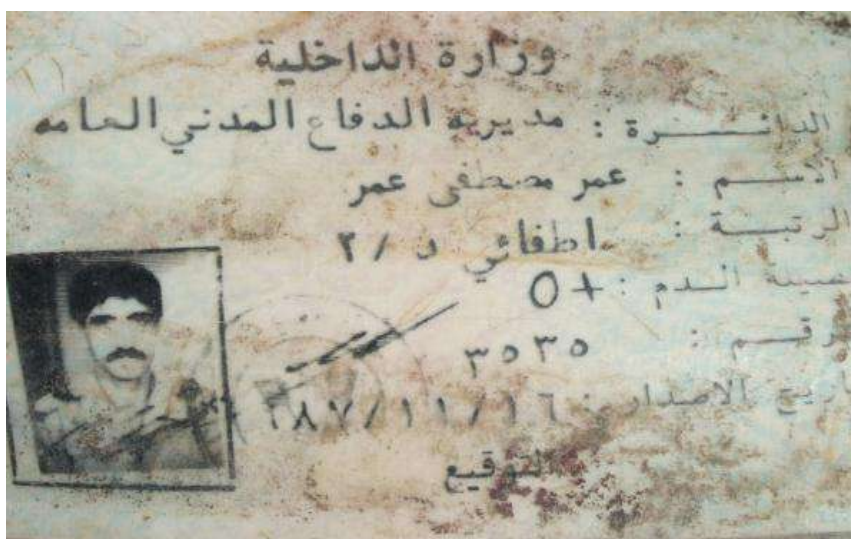 وزارة الداخلية
الدائـــــرة : مديرية الدفاع المدني العامه
الاســـم : عمر مصطفى عمر
الرتبـــة : اطفائي د / ٢
الـدم : + O
رقـــم : ٣٥٣٥
تاريخ الاصدار : ٨٧/١١/١٦
التوقيع